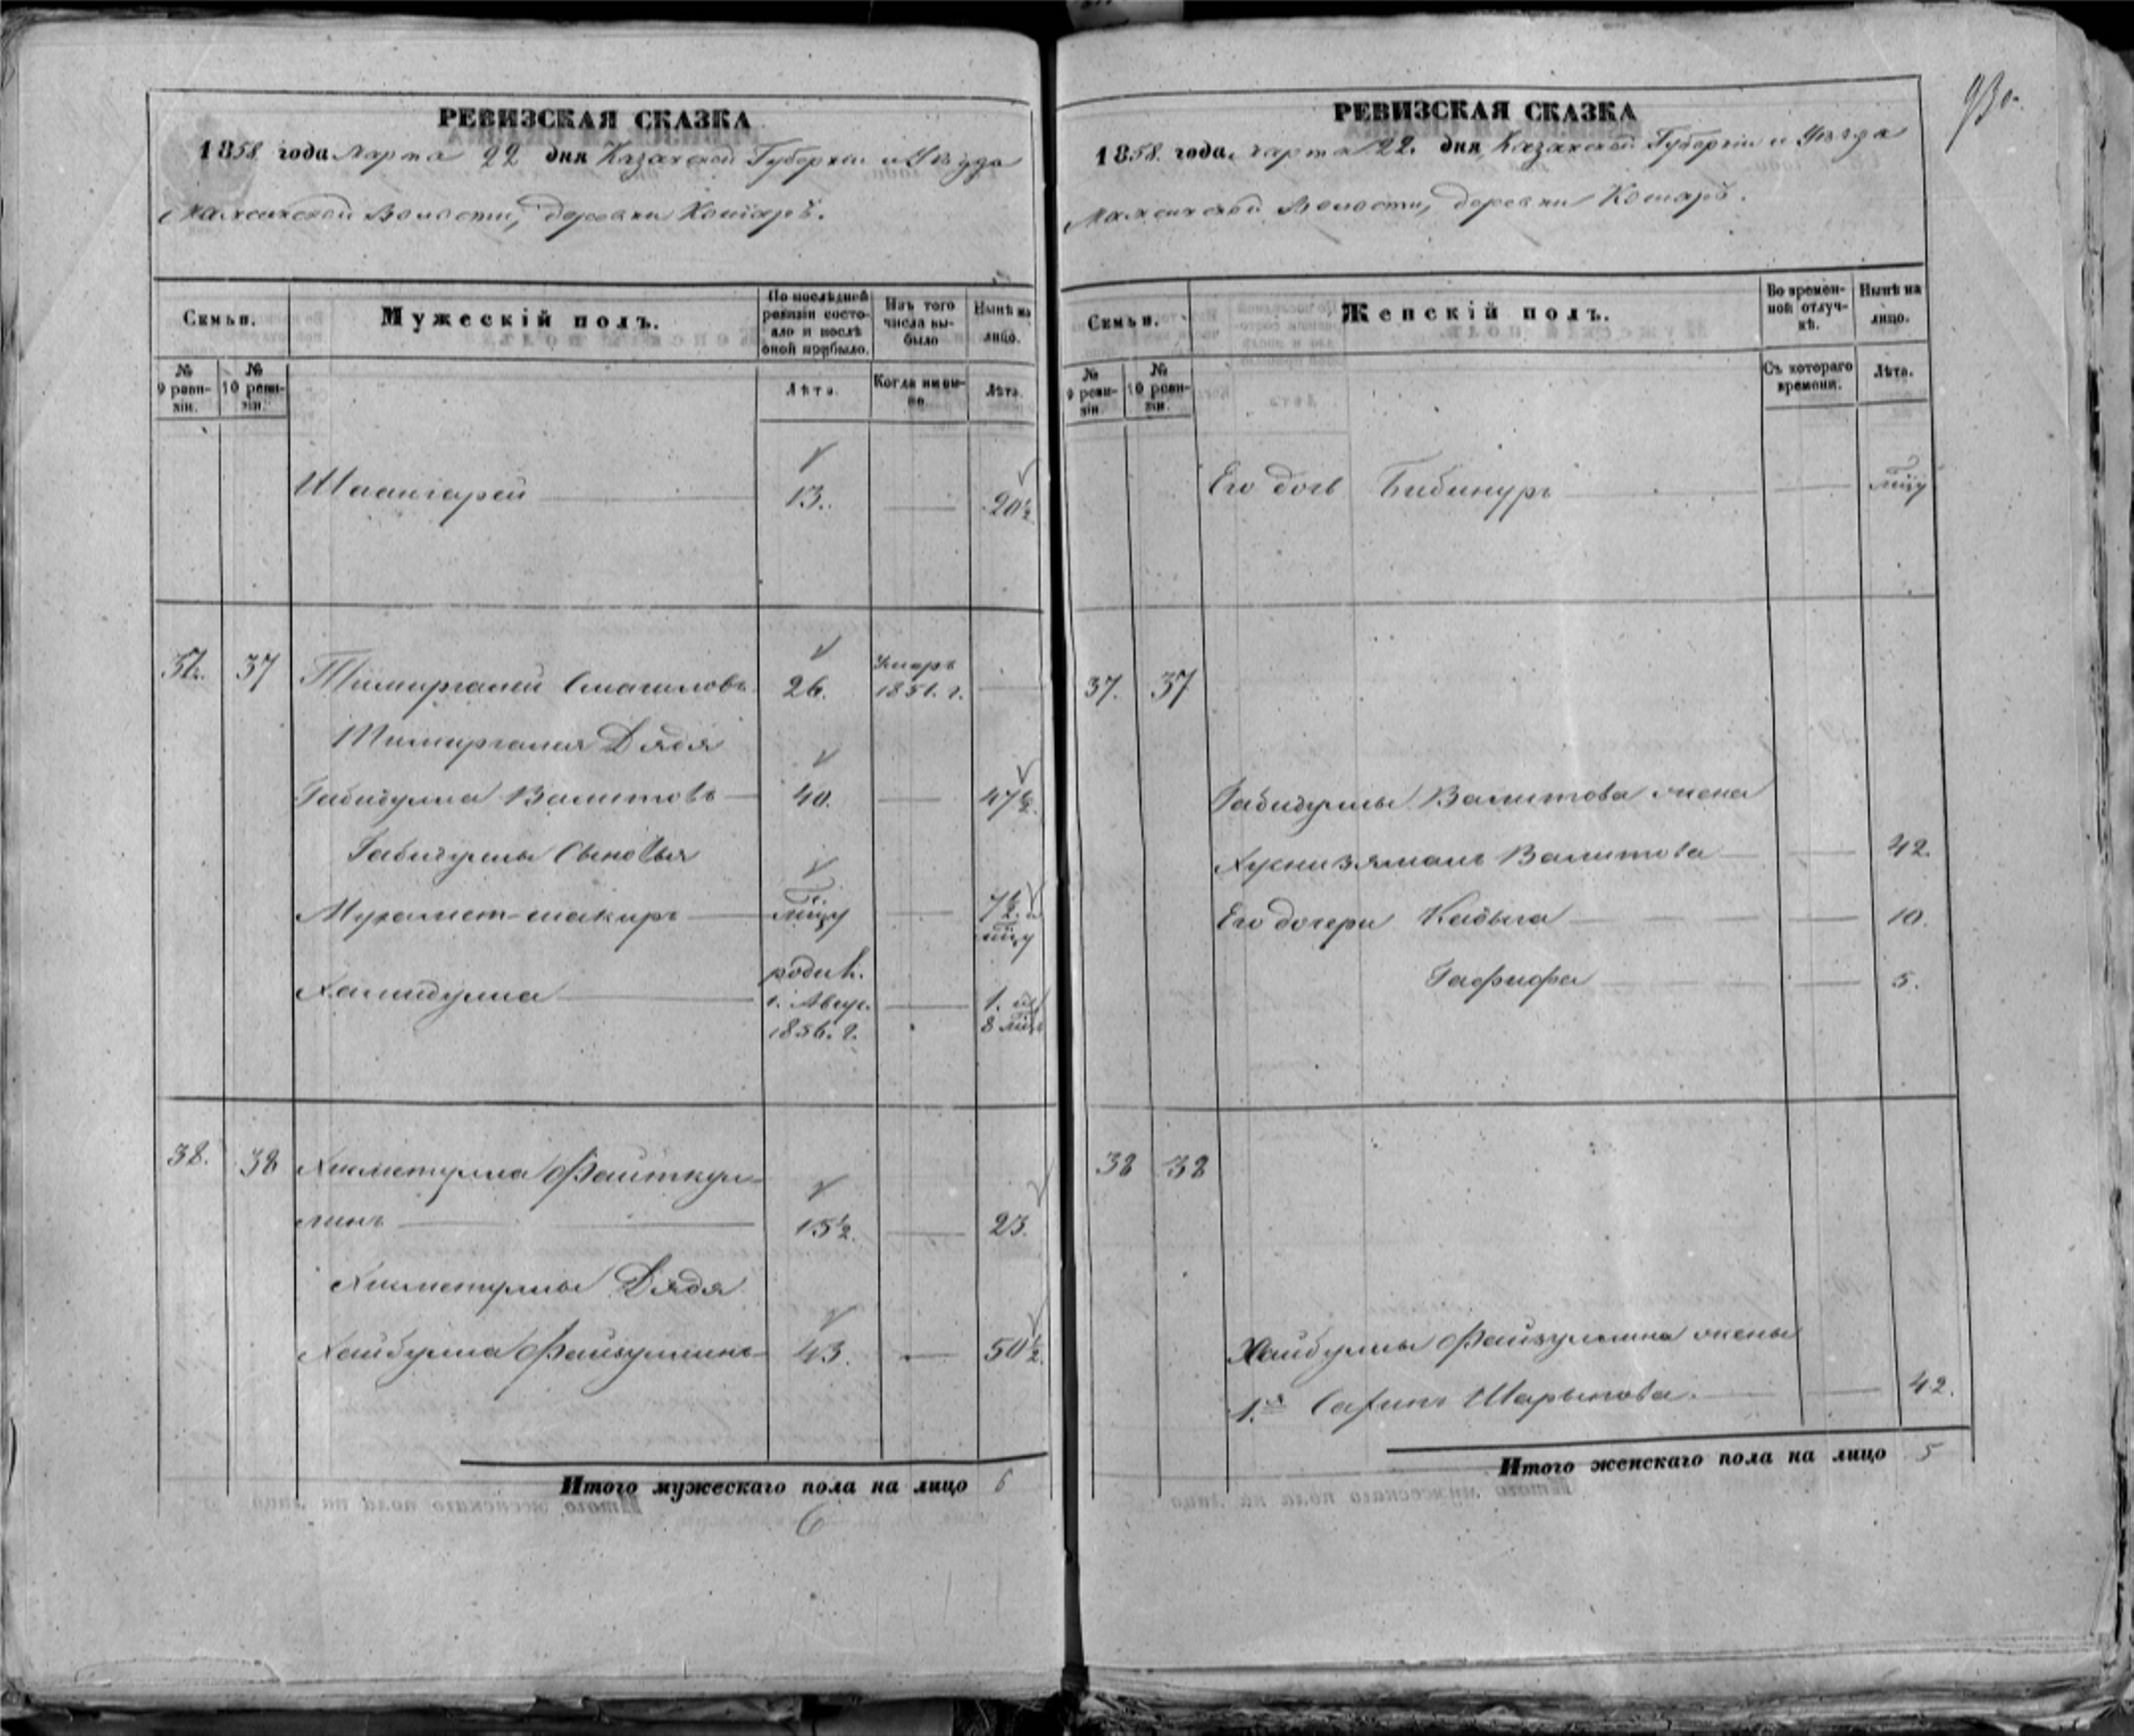 РЕВИЗСКАЯ СКАЗКА
1858 года Марта 22 дня Казанской Губерніи и Уѣзда
волости, деревни Кошаръ.
Семьи.
Мужескій полъ.
По послѣдней ревизіи состояло и послѣ оной прибыло.
Изъ того числа выбыло
Нынѣ на лицо.
№ 9 ревизіи.
№ 10 ревизіи.
Лѣта.
Когда именно
Лѣта.
Шаангарей 13. 20½
37. 37 Тимиргалей Смагиловъ 26. Умеръ 1851. г.
Тимиргалея Дядя
Габидулла Валитовъ 40. 47½.
Габидуллы Сыновья
Мухамет-шакиръ 7½.
Хамидулла 1. Авгус. 1856. г. 1. и 8 мѣц
38. 38 Хисметулла Фаиткул-
линъ 15½. 23.
Хисметуллы Дядя
Хайбулла Файзуллинъ 43. 50½.
Итого мужескаго пола на лицо 6
6
930.
РЕВИЗСКАЯ СКАЗКА
1858. года Марта 22. дня Казанской Губерніи и Уѣзда
волости, деревни Кошаръ.
Семьи.
Женскій полъ.
Во временной отлучкѣ.
Нынѣ на лицо.
№ 9 ревизіи.
№ 10 ревизіи.
Съ котораго времени.
Лѣта.
Его дочь Бибинуръ
37. 37
Габидуллы Валитова жена
Хуснизямалъ Валитова 42.
Его дочери Кадыга 10.
Гафифа 5.
38 38
Хайбуллы Файзуллина жены
1.я Шарыпова. 42.
Итого женскаго пола на лицо 5